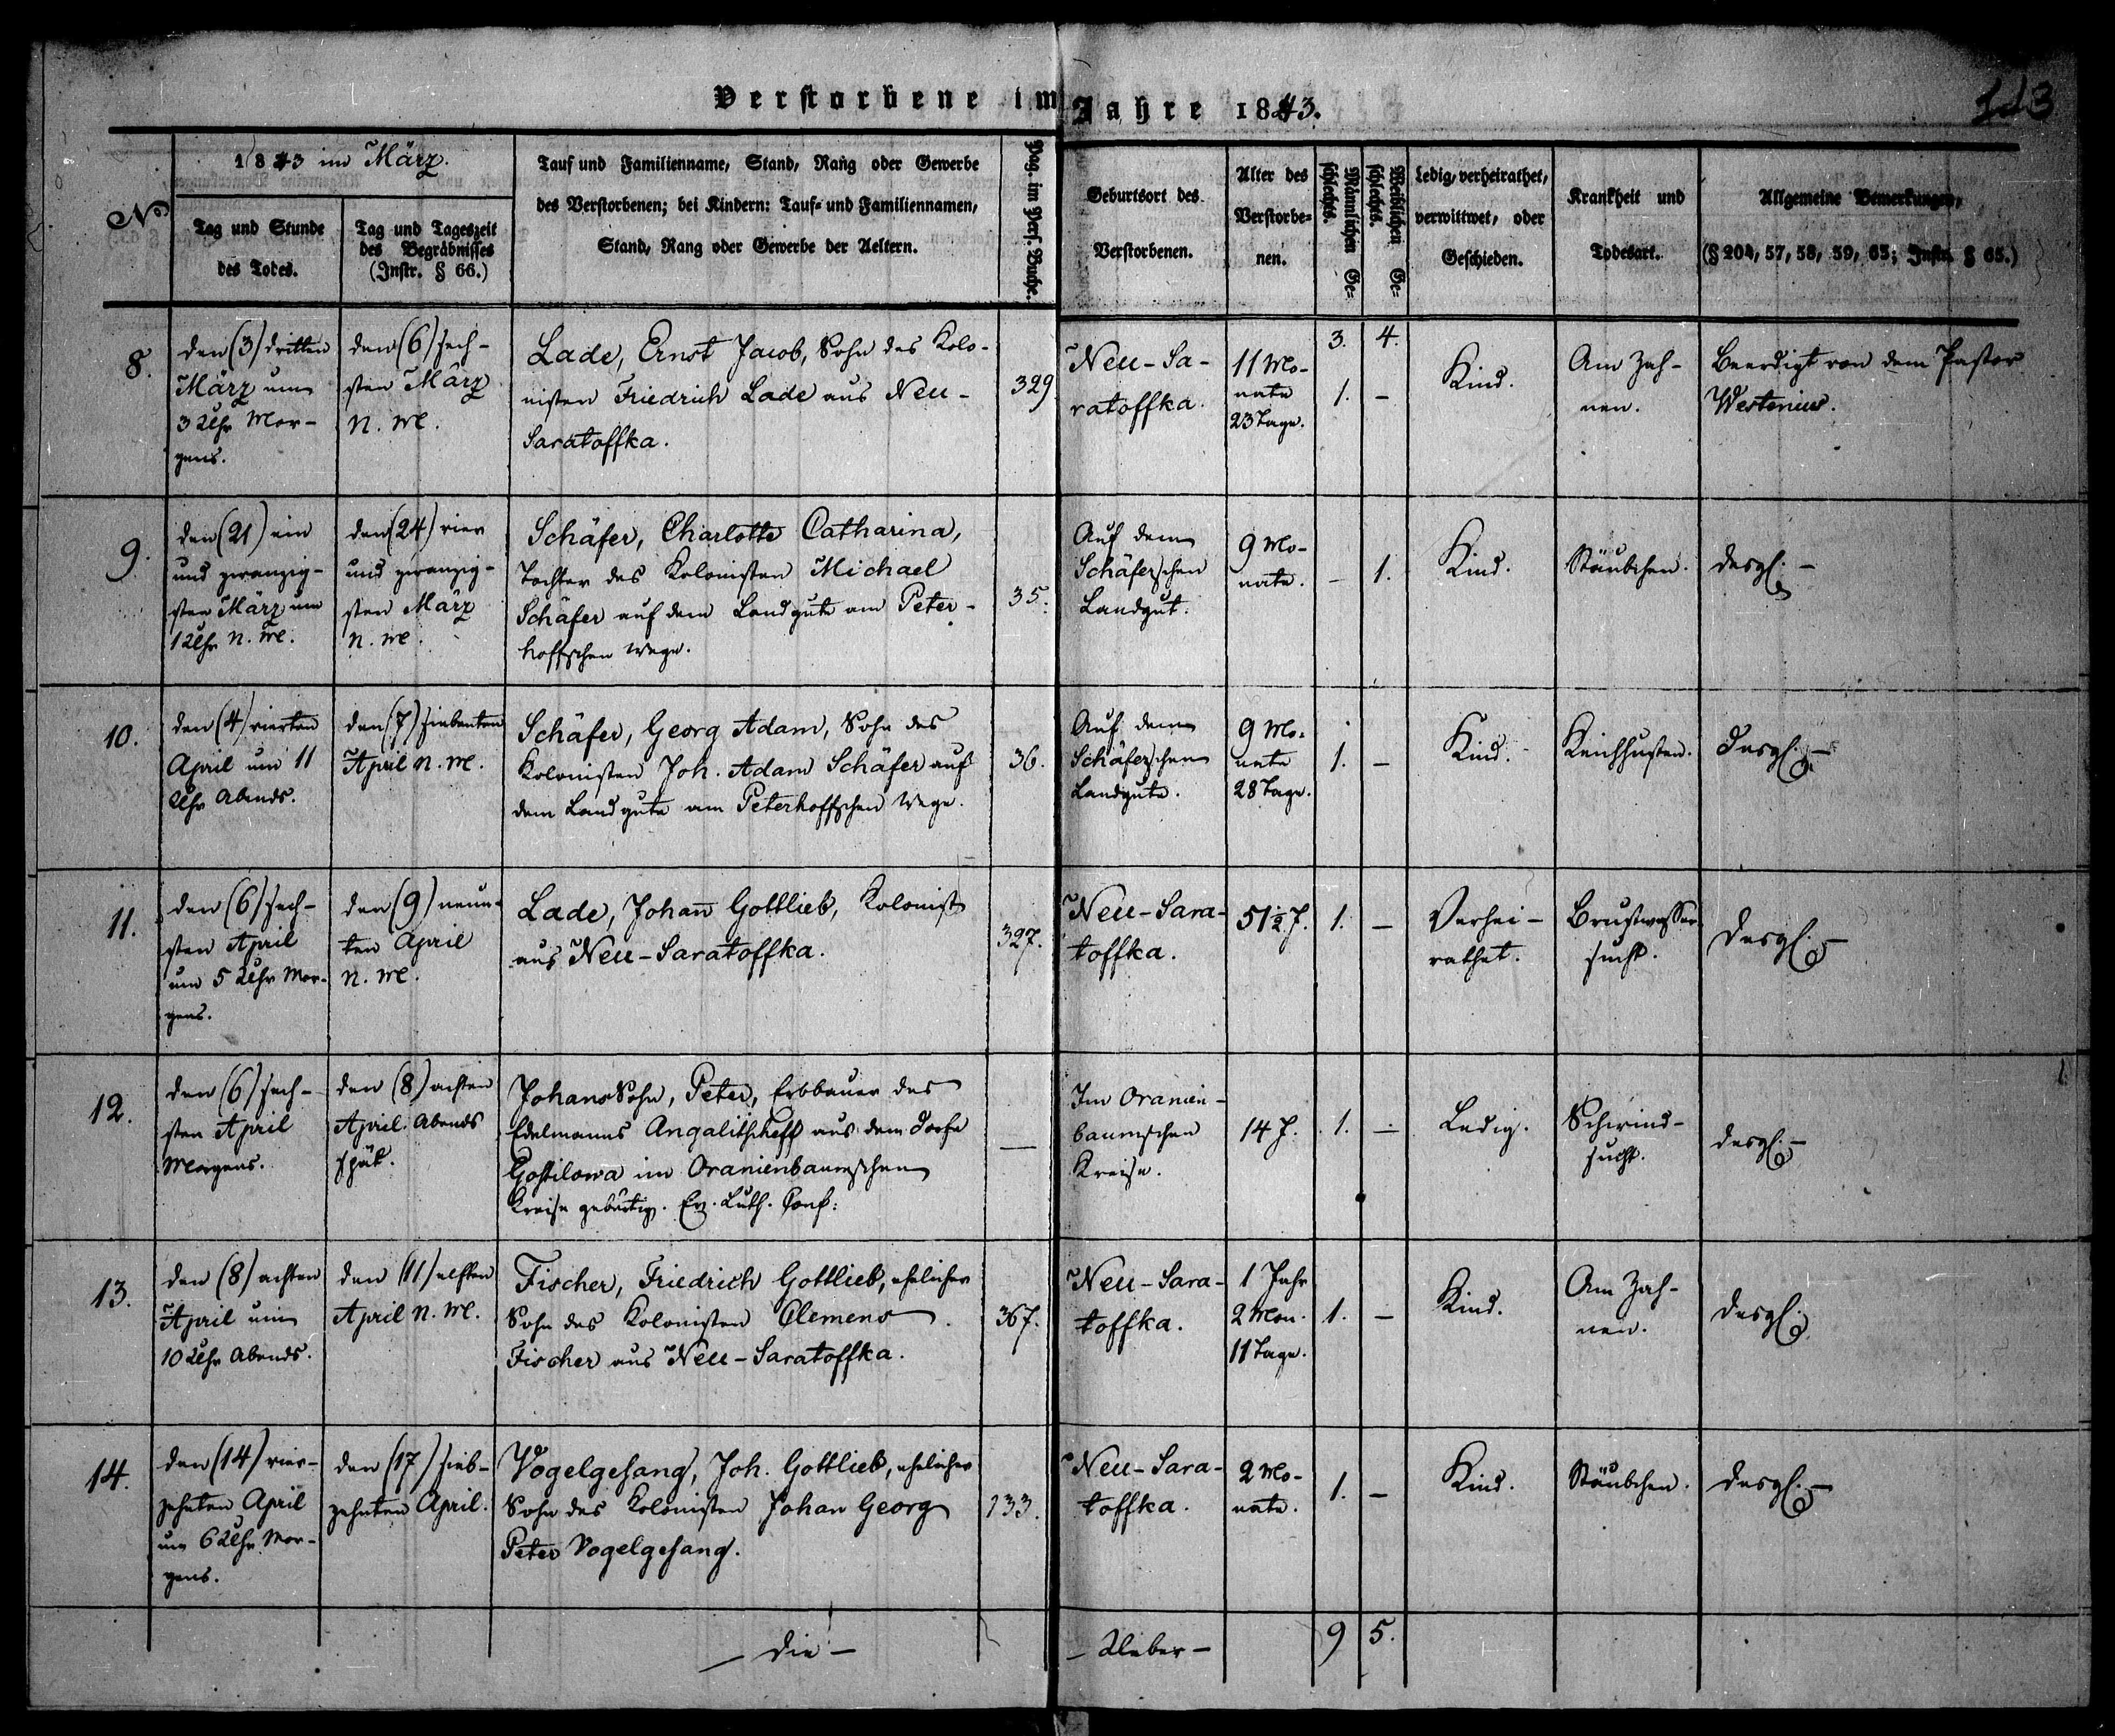 Verstorbene im Jahre 1843.
113
No
1843 im März.
Tag und Stunde
des Todes.
Tag und Tageszeit
des Begräbnisses
(Instr. § 66.)
Tauf und Familienname, Stand, Rang oder Gewerbe
des Verstorbenen; bei Kindern: Tauf- und Familiennamen,
Stand, Rang oder Gewerbe der Aeltern.
Pag. im Pers. Buche.
Geburtsort des
Verstorbenen.
Alter des
Verstorbe-
nen.
Männlichen Ge-
schlechts.
Weiblichen Ge-
schlechts.
Ledig, verheirathet,
verwittwet, oder
Geschieden.
Krankheit und
Todesart.
Allgemeine Bemerkungen,
(§ 204, 57, 58, 59, 63; Instr. § 65.)
8.
den (3) dritten
März um
3 Uhr Mor-
gens.
den (6) sech-
sten März
N. M.
Lade, Ernst Jacob, Sohn des Kolo-
nisten Friedrich Lade aus Neu-
Saratoffka.
329
Neu-Sa-
ratoffka.
11 Mo-
nate
23 Tage.
3.
1.
4.
–
Kind.
Am Zah-
nen.
Beerdigt von dem Pastor
Westenius.
9.
den (21) ein
und zwanzig-
sten März um
1 Uhr N. M.
den (24) vier
und zwanzig-
sten März
N. M.
Schäfer, Charlotte Catharina,
Tochter des Kolonisten Michael
Schäfer auf dem Landgute am Peter-
hoffschen Wege.
35.
Auf dem
Schäferschen
Landgut.
9 Mo-
nate.
–
1.
Kind.
Stäubchen.
desgl. –
10.
den (4) vierten
April um 11
Uhr Abends.
den (7) siebenten
April N. M.
Schäfer, Georg Adam, Sohn des
Kolonisten Joh. Adam Schäfer auf
dem Landgute am Peterhoffschen Wege.
36.
Auf dem
Schäferschen
Landgute.
9 Mo-
nate
28 Tage.
1.
–
Kind.
Keichhusten.
desgl. –
11.
den (6) sech-
sten April
um 5 Uhr Mor-
gens.
den (9) neun-
ten April
N. M.
Lade, Johan̄ Gottlieb, Kolonist
aus Neu-Saratoffka.
327.
Neu-Sara-
toffka.
51½ J.
1.
–
Verhei-
rathet.
Brustwasser
sucht.
desgl. –
12.
den (6) sech-
sten April
Morgens.
den (8) achten
April Abends
spät.
Johans Sohn, Peter, Erbbauer des
Edelmanns Angalitscheff aus dem Dorfe
Gostilowa im Oranienbaumschen
Kreise gebürtig. Ev. Luth. Conf:
—
Im Oranien-
baumschen
Kreise.
14 J.
1.
–
Ledig.
Schwind-
sucht.
desgl. –
13.
den (8) achten
April um
10 Uhr Abends.
den (11) elften
April N. M.
Fischer, Friedrich Gottlieb, ehelicher
Sohn des Kolonisten Clemens
Fischer aus Neu-Saratoffka.
367.
Neu-Sara-
toffka.
1 Jahr
2 Mon.
11 Tage.
1.
–
Kind.
Am Zah-
nen.
desgl.
14.
den (14) vier-
zehnten April
um 6 Uhr Mor-
gens.
den (17) sieb-
zehnten April.
Vogelgesang, Joh. Gottlieb, ehelicher
Sohn des Kolonisten Johan Georg
Peter Vogelgesang.
133.
Neu-Sara-
toffka.
2 Mo-
nate.
1.
–
Kind.
Stäubchen.
desgl. –
— die —
— Ueber —
9
5.